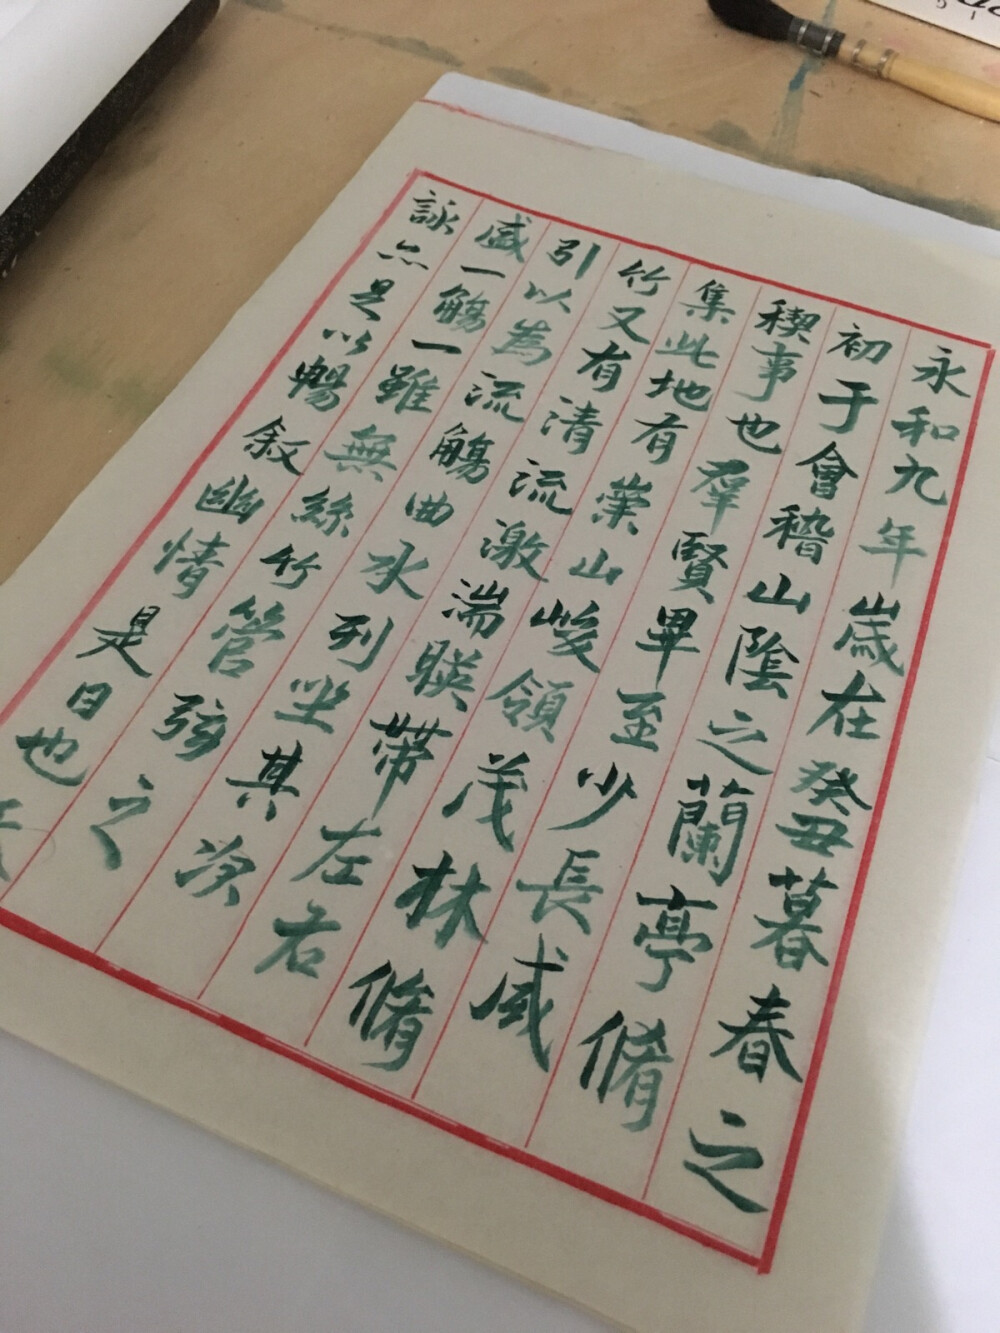 永和九年歲在癸丑暮春之
初于會稽山陰之蘭亭脩
稧事也羣賢畢至少長咸
集此地有崇山峻領茂林脩
竹又有清流激湍暎帶左右
引以為流觴曲水列坐其次
盛一觴一雖無絲竹管弦之
詠亦是以暢叙幽情是日也